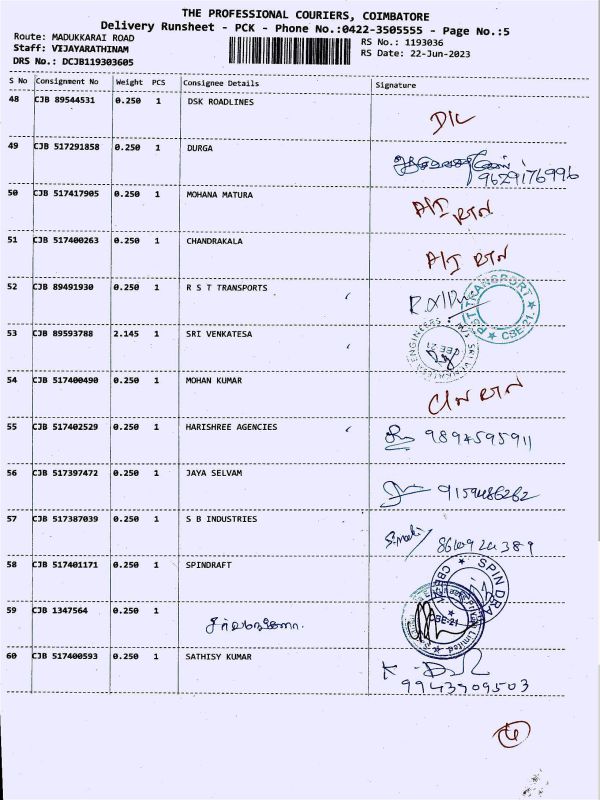 THE PROFESSIONAL COURIERS, COIMBATORE
Delivery Runsheet - PCK - Phone No.:0422-3505555 - Page No.:5
Route: MADUKKARAI ROAD
RS No.: 1193036
Staff: VIJAYARATHINAM
RS Date: 22-Jun-2023
DRS No.: DCJB119303605
S No Consignment No Weight PCS Consignee Details Signature
48 CJB 89544531 0.250 1 DSK ROADLINES D/L
49 CJB 517291858 0.250 1 DURGA
9629176996
50 CJB 517417905 0.250 1 MOHANA MATURA A/I RTN
51 CJB 517400263 0.250 1 CHANDRAKALA A/I RTN
52 CJB 89491930 0.250 1 R S T TRANSPORTS
RST TRANSPORT ★ CBE-21. ★
53 CJB 89593788 2.145 1 SRI VENKATESA
M/S SRI VENKATESA ENGINEERS CBE 21
54 CJB 517400490 0.250 1 MOHAN KUMAR C/N RTN
55 CJB 517402529 0.250 1 HARISHREE AGENCIES 9894595911
56 CJB 517397472 0.250 1 JAYA SELVAM 9159486262
57 CJB 517387039 0.250 1 S B INDUSTRIES 8610924389
58 CJB 517401171 0.250 1 SPINDRAFT
SPINDRAFT
59 CJB 1347564 0.250 1
Private Limited CBE-21
60 CJB 517400593 0.250 1 SATHISY KUMAR
9943909503